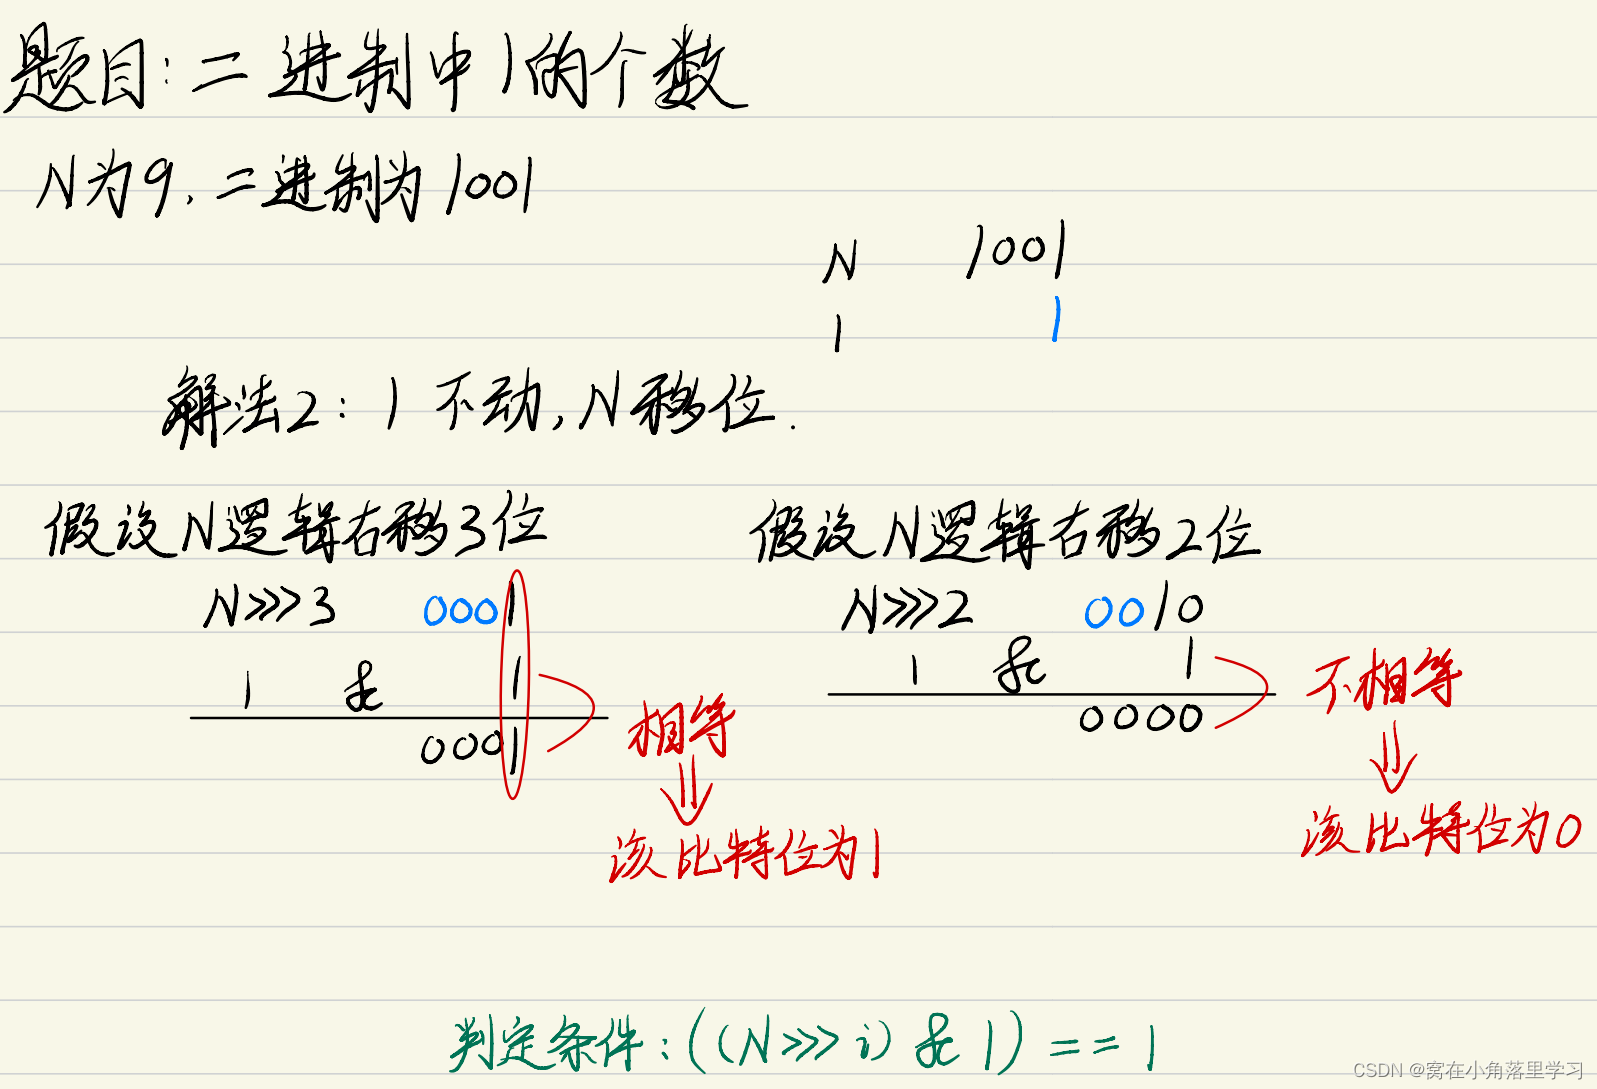 题目:二进制中1的个数
N为9,二进制为1001
N 1001
1 1
解法2:1不动,N移位.
假设N逻辑右移3位
N>>>3 0001
1 & 1
0001
相等
该比特位为1
假设N逻辑右移2位
N>>>2 0010
1 & 1
0000
不相等
该比特位为0
判定条件:((N>>>i)&1)==1
CSDN @窝在小角落里学习